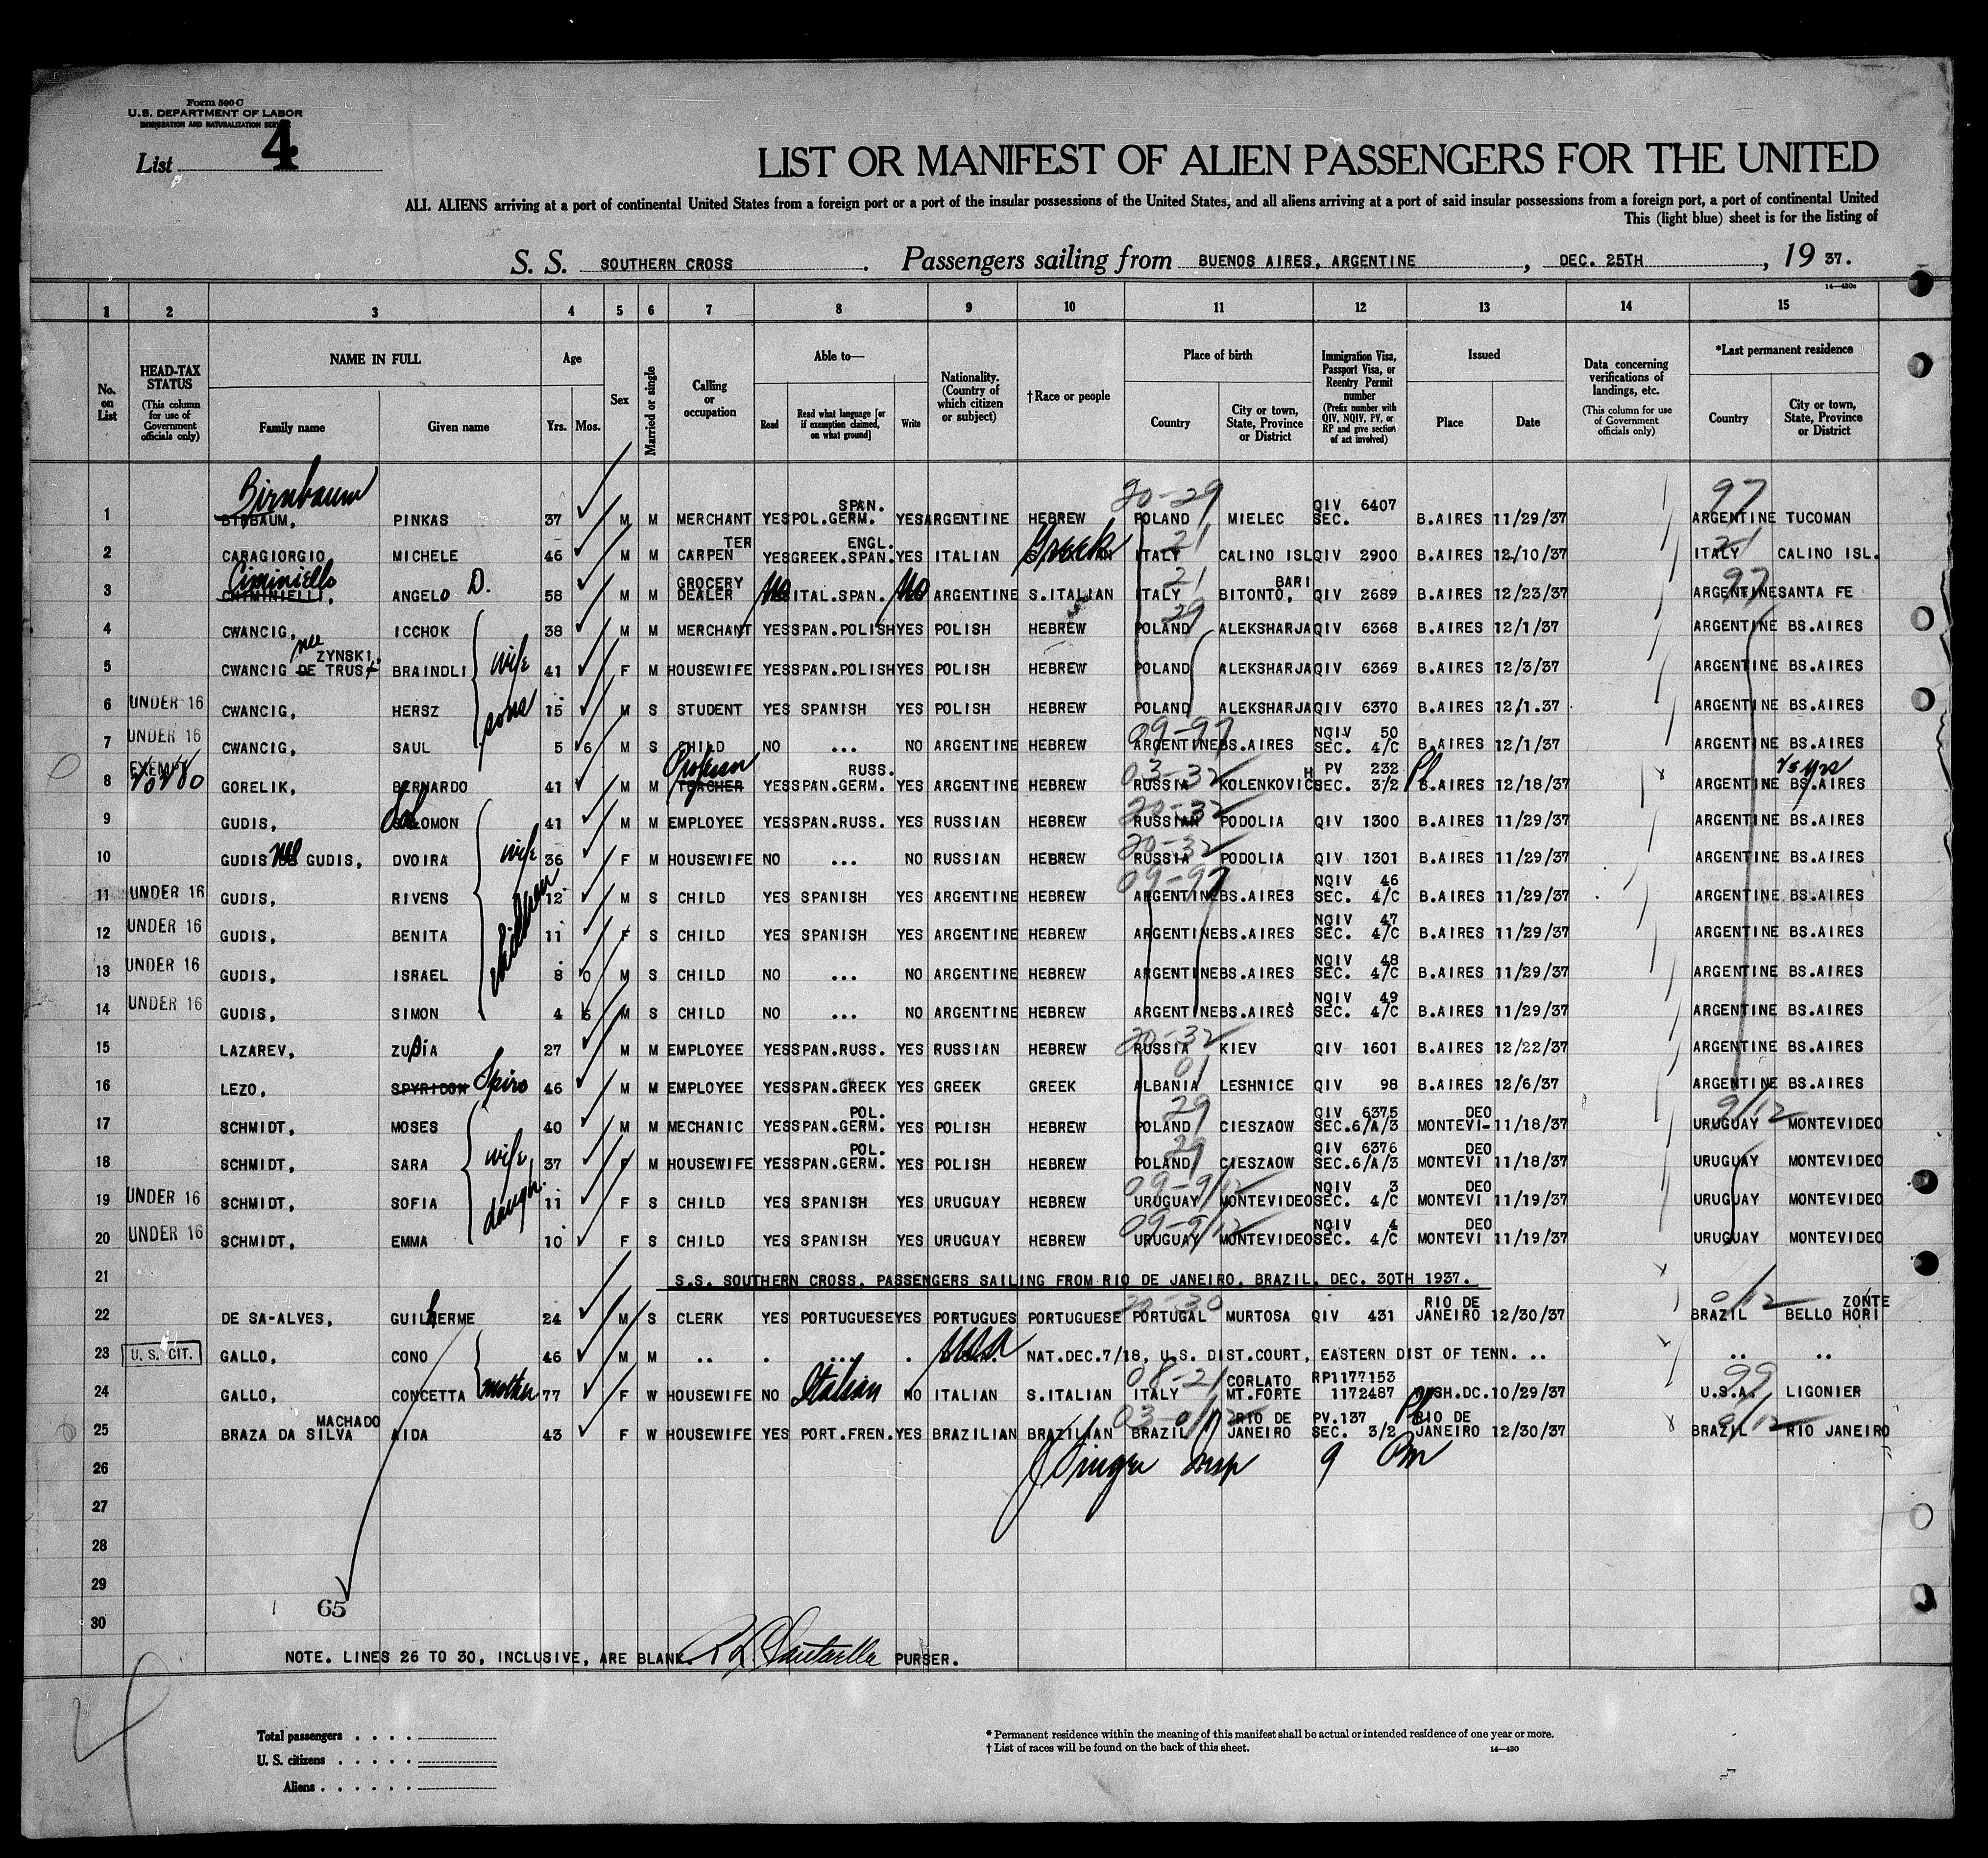 Form 500 C
U.S. DEPARTMENT OF LABOR
IMMIGRATION AND NATURALIZATION
List 4
LIST OR MANIFEST OF ALIEN PASSENGERS FOR THE UNITED
ALL ALIENS arriving at a port of continental United States from a foreign port or a port of the insular possessions of the United States, and all aliens arriving at a port of said insular possessions from a foreign port, a port of continental United
This (light blue) sheet is for the listing of
S. S. SOUTHERN CROSS. Passengers sailing from BUENOS AIRES, ARGENTINE, DEC. 25TH, 19 37.
14—430a
1 2 3 4 5 6 7 8 9 10 11 12 13 14 15
No. on List
HEAD-TAX STATUS (This column for use of Government officials only)
NAME IN FULL Family name Given name
Age Yrs. Mos.
Sex
Married or single
Calling or occupation
Able to— Read Read what language [or if exemption claimed, on what ground] Write
Nationality. (Country of which citizen or subject)
†Race or people
Place of birth Country City or town, State, Province or District
Immigration Visa, Passport Visa, or Reentry Permit number (Prefix number with QIV, NQIV, PV, or RP and give section of act involved)
Issued Place Date
Data concerning verifications of landings, etc. (This column for use of Government officials only)
*Last permanent residence Country City or town, State, Province or District
Birnbaum 20-29 97
1 BIRBAUM, PINKAS 37 M M MERCHANT YES POL.GERM. SPAN. YES ARGENTINE HEBREW POLAND MIELEC QIV 6407 SEC. B.AIRES 11/29/37 ARGENTINE TUCOMAN
2 CARAGIORGIO, MICHELE 46 M M CARPENTER YES GREEK.SPAN. ENGL. YES ITALIAN Greek ITALY 21 CALINO ISL QIV 2900 B.AIRES 12/10/37 ITALY 21 CALINO ISL.
Ciminiello
3 CHIMINIELLI, ANGELO D. 58 M M GROCERY DEALER No ITAL.SPAN. No ARGENTINE S.ITALIAN ITALY 21 BITONTO, BARI QIV 2689 B.AIRES 12/23/37 ARGENTINE 97 SANTA FE
4 CWANCIG, ICCHOK 38 M M MERCHANT YES SPAN.POLISH YES POLISH HEBREW POLAND 29 ALEKSHARJA QIV 6368 B.AIRES 12/1/37 ARGENTINE BS.AIRES
5 CWANCIG nee DE TRUST ZYNSKI, BRAINDLI wife 41 F M HOUSEWIFE YES SPAN.POLISH YES POLISH HEBREW POLAND ALEKSHARJA QIV 6369 B.AIRES 12/3/37 ARGENTINE BS.AIRES
6 UNDER 16 CWANCIG, HERSZ sons 15 M S STUDENT YES SPANISH YES POLISH HEBREW POLAND ALEKSHARJA QIV 6370 B.AIRES 12/1.37 ARGENTINE BS.AIRES
7 UNDER 16 CWANCIG, SAUL 5 6 M S CHILD NO ... NO ARGENTINE HEBREW 09-97 ARGENTINE BS.AIRES NQIV 50 SEC. 4/C B.AIRES 12/1/37 ARGENTINE BS.AIRES
8 EXEMPT GORELIK, BERNARDO 41 M M Professor TEACHER YES SPAN.GERM. RUSS. YES ARGENTINE HEBREW 03-32 RUSSIA KOLENKOVICH PV 232 SEC. 3/2 B.AIRES 12/18/37 ARGENTINE BS.AIRES
9 GUDIS, SOLOMON 41 M M EMPLOYEE YES SPAN.RUSS. YES RUSSIAN HEBREW 20-32 RUSSIAN PODOLIA QIV 1300 B.AIRES 11/29/37 ARGENTINE BS.AIRES
10 GUDIS nee GUDIS, DVOIRA wife 36 F M HOUSEWIFE NO ... NO RUSSIAN HEBREW 20-32 RUSSIA PODOLIA QIV 1301 B.AIRES 11/29/37 ARGENTINE BS.AIRES
11 UNDER 16 GUDIS, RIVENS children 12 M S CHILD YES SPANISH YES ARGENTINE HEBREW 09-97 ARGENTINE BS.AIRES NQIV 46 SEC. 4/C B.AIRES 11/29/37 ARGENTINE BS.AIRES
12 UNDER 16 GUDIS, BENITA 11 F S CHILD YES SPANISH YES ARGENTINE HEBREW ARGENTINE BS.AIRES NQIV 47 SEC. 4/C B.AIRES 11/29/37 ARGENTINE BS.AIRES
13 UNDER 16 GUDIS, ISRAEL 8 0 M S CHILD NO ... NO ARGENTINE HEBREW ARGENTINE BS.AIRES NQIV 48 SEC. 4/C B.AIRES 11/29/37 ARGENTINE BS.AIRES
14 UNDER 16 GUDIS, SIMON 4 6 M S CHILD NO ... NO ARGENTINE HEBREW ARGENTINE BS.AIRES NQIV 49 SEC. 4/C B.AIRES 11/29/37 ARGENTINE BS.AIRES
15 LAZAREV, 27 M M EMPLOYEE YES SPAN.RUSS. YES RUSSIAN HEBREW 20-32 RUSSIA KIEV QIV 1601 B.AIRES 12/22/37 ARGENTINE BS.AIRES
16 LEZO, SPYRIDON Spiro 46 M M EMPLOYEE YES SPAN.GREEK YES GREEK GREEK 01 ALBANIA LESHNICE QIV 98 B.AIRES 12/6/37 ARGENTINE BS.AIRES
17 SCHMIDT, MOSES 40 M M MECHANIC YES SPAN.GERM. POL. YES POLISH HEBREW 29 POLAND CIESZAOW QIV 6375 SEC.6/A/3 MONTEVI-DEO 11/18/37 9/12 URUGUAY MONTEVIDEO
18 SCHMIDT, SARA wife 37 F M HOUSEWIFE YES SPAN.GERM. POL. YES POLISH HEBREW 29 POLAND CIESZAOW QIV 6376 SEC.6/A/3 MONTEVI DEO 11/18/37 URUGUAY MONTEVIDEO
19 UNDER 16 SCHMIDT, SOFIA daugh. 11 F S CHILD YES SPANISH YES URUGUAY HEBREW 09-9/12 URUGUAY MONTEVIDEO NQIV 3 SEC. 4/C MONTEVI DEO 11/19/37 URUGUAY MONTEVIDEO
20 UNDER 16 SCHMIDT, EMMA 10 F S CHILD YES SPANISH YES URUGUAY HEBREW 09-9/12 URUGUAY MONTEVIDEO NQIV 4 SEC. 4/C MONTEVI DEO 11/19/37 URUGUAY MONTEVIDEO
21 S.S. SOUTHERN CROSS. PASSENGERS SAILING FROM RIO DE JANEIRO. BRAZIL. DEC. 30TH 1937.
22 DE SA-ALVES, GUILHERME 24 M S CLERK YES PORTUGUESE YES PORTUGUES PORTUGUESE 20-30 PORTUGAL MURTOSA QIV 431 RIO DE JANEIRO 12/30/37 9/12 BRAZIL BELLO HORI ZONTE
23 U. S. CIT. GALLO, CONO 46 M M .. . ... . USA NAT.DEC.7/18, U.S. DIST.COURT, EASTERN DIST OF TENN. .. .. ..
24 GALLO, CONCETTA mother 77 F W HOUSEWIFE NO Italian NO ITALIAN S.ITALIAN 08-21 ITALY CORLATO MT.FORTE RP1177153 1172487 WASH.DC. 10/29/37 99 U.S.A. LIGONIER
25 BRAZA DA SILVA MACHADO AIDA 43 F W HOUSEWIFE YES PORT.FREN. YES BRAZILIAN BRAZILIAN 03-9/12 BRAZIL RIO DE JANEIRO PV.137 SEC. 3/2 RIO DE JANEIRO 12/30/37 9/12 BRAZIL RIO JANEIRO
26 Insp 9 Pm
27
28
29
65
30
NOTE. LINES 26 TO 30, INCLUSIVE, ARE BLANK. PURSER.
Total passengers . . . .
U. S. citizens . . . . .
Aliens . . . . . .
* Permanent residence within the meaning of this manifest shall be actual or intended residence of one year or more.
† List of races will be found on the back of this sheet. 14—430